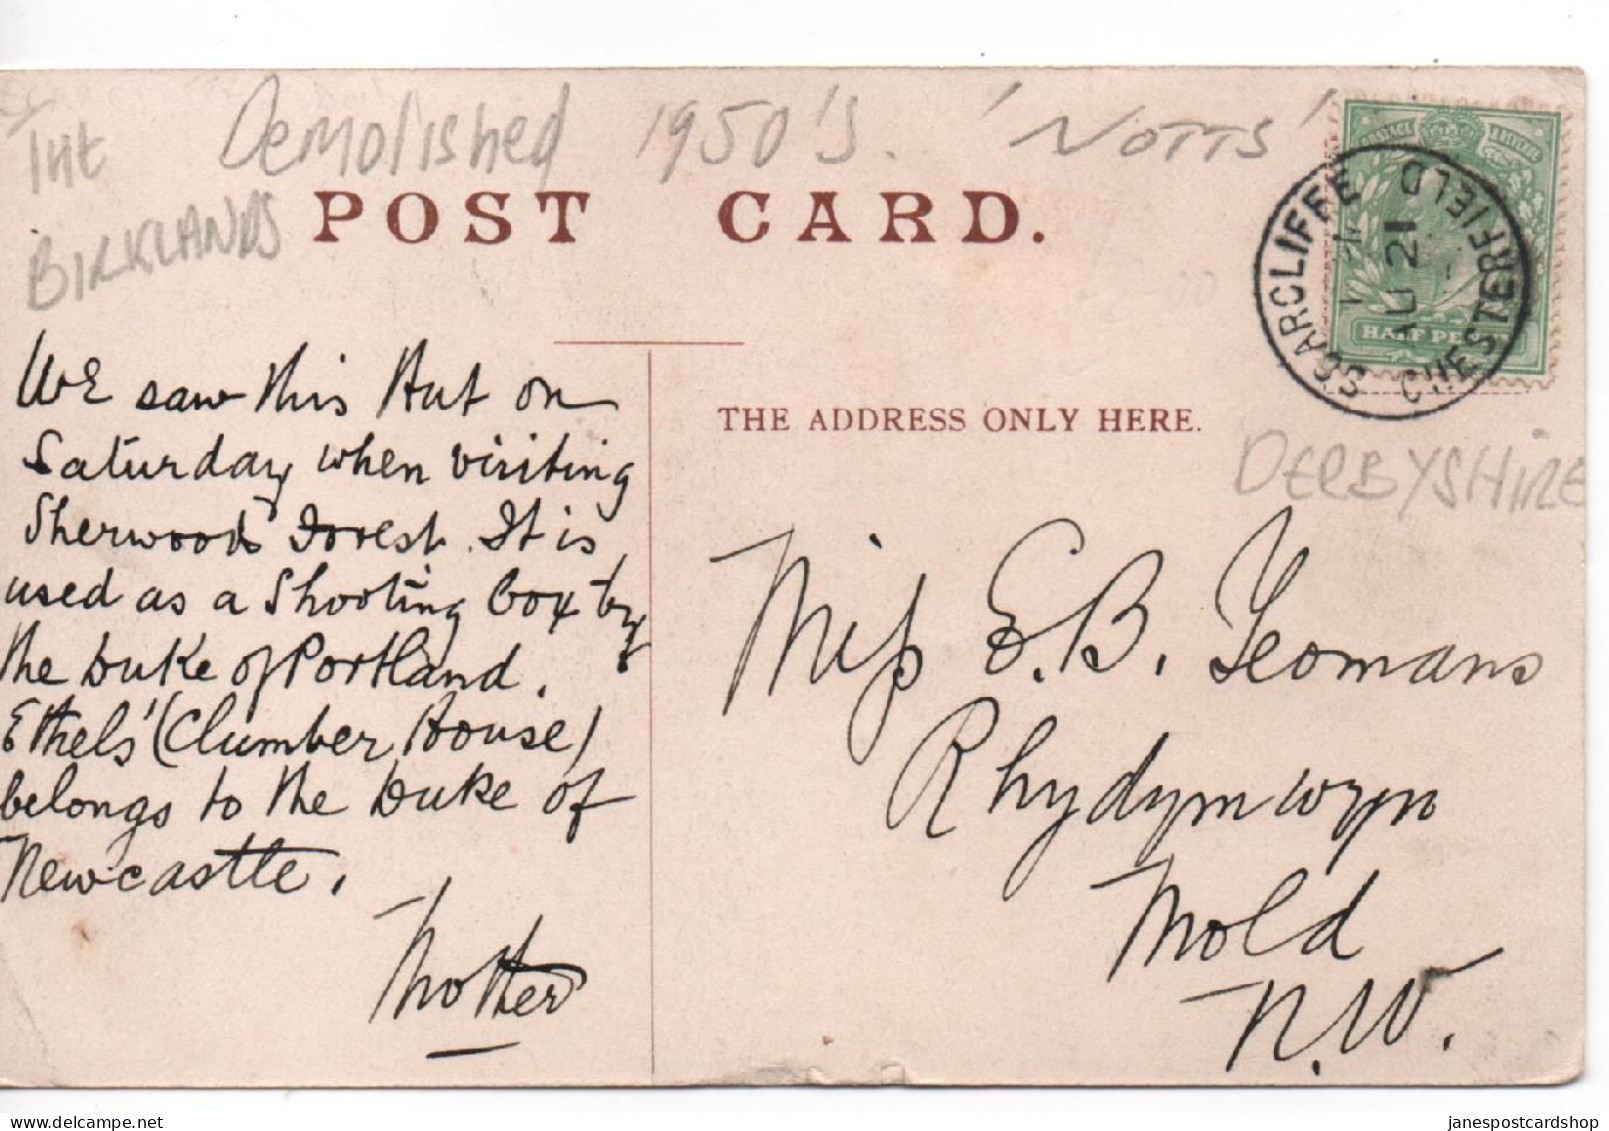 Demolished 1950's. 'NOTTS'
THE
BIRKLANDS
POST CARD.
POSTAGE REVENUE
HALF PENNY
SCARCLIFFE
AU 21
CHESTERFIELD
DERBYSHIRE
We saw this Hut on
Saturday when visiting
Sherwood Forest. It is
used as a Shooting box by
the Duke of Portland.
Ethels' (Clumber House)
belongs to the Duke of
Newcastle.
Mother
THE ADDRESS ONLY HERE.
Miss E. B. Yeomans
Rhydymwyn
Mold
N.W.
janespostcardshop